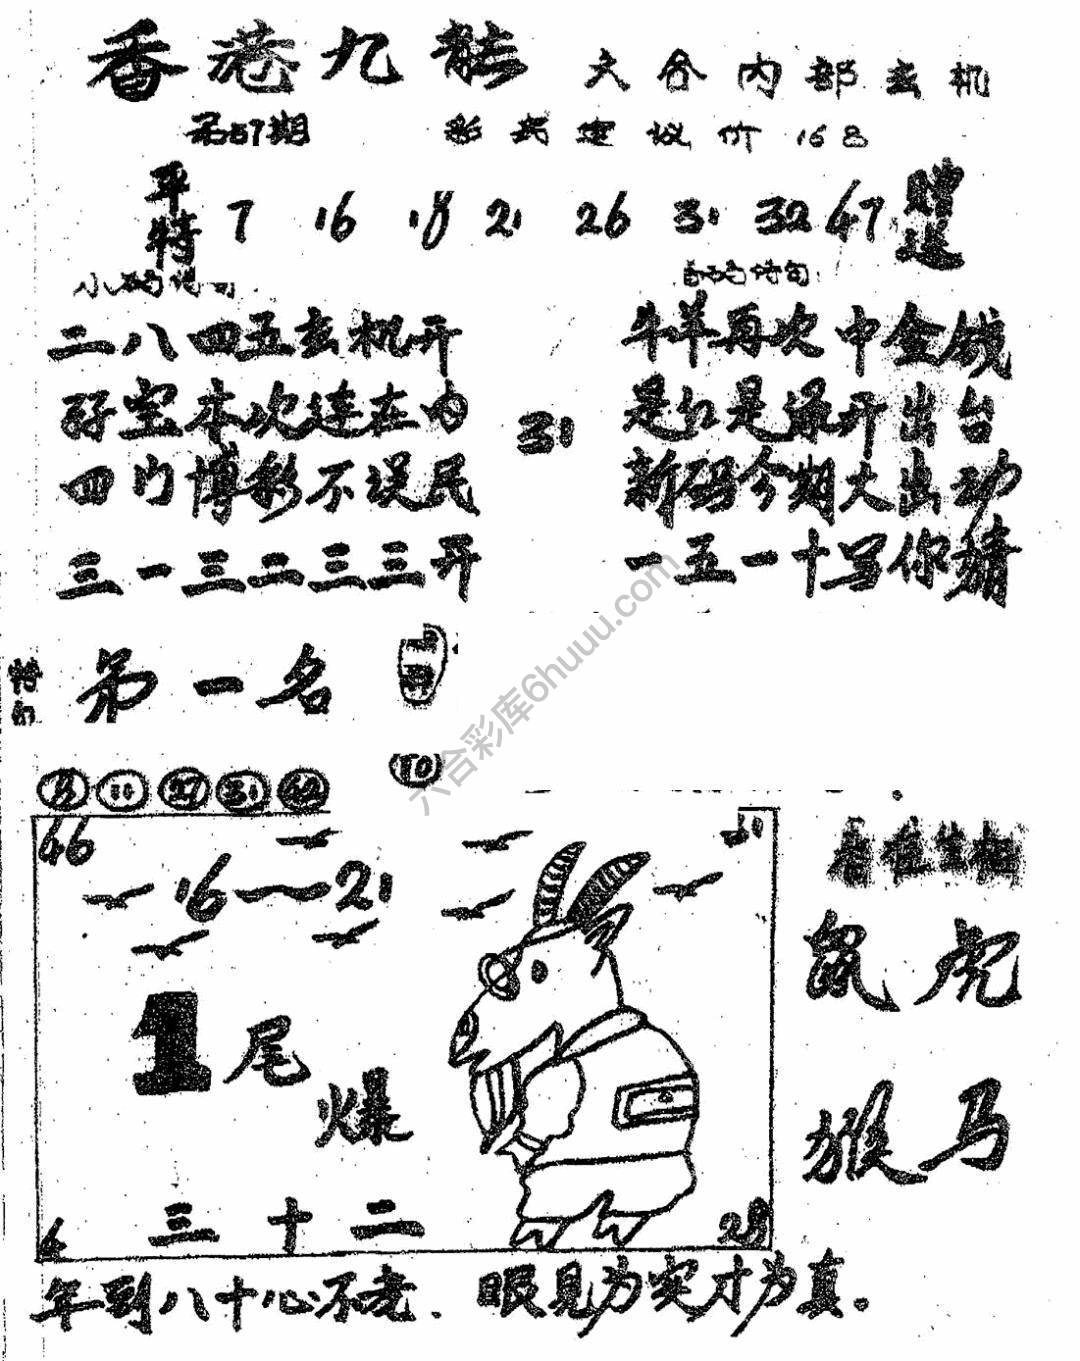 香港九龍 六合内部玄机
第57期 彩民建议价 168
平特 7 16 18 21 26 31 32 47 赠送
二八四五玄机开 牛羊再次中金钱
好宝本次连在内 31 是红是绿开出台
四门博彩不误民 新码今期大出功
三一三二三三开 一五一十写你猜
第一名
11 27 31
10
46 16—21
1尾
爆
4 三十二 28
鼠 虎
猴 马
年到八十心不老. 眼见为实才为真。
六合彩库6huuu.com